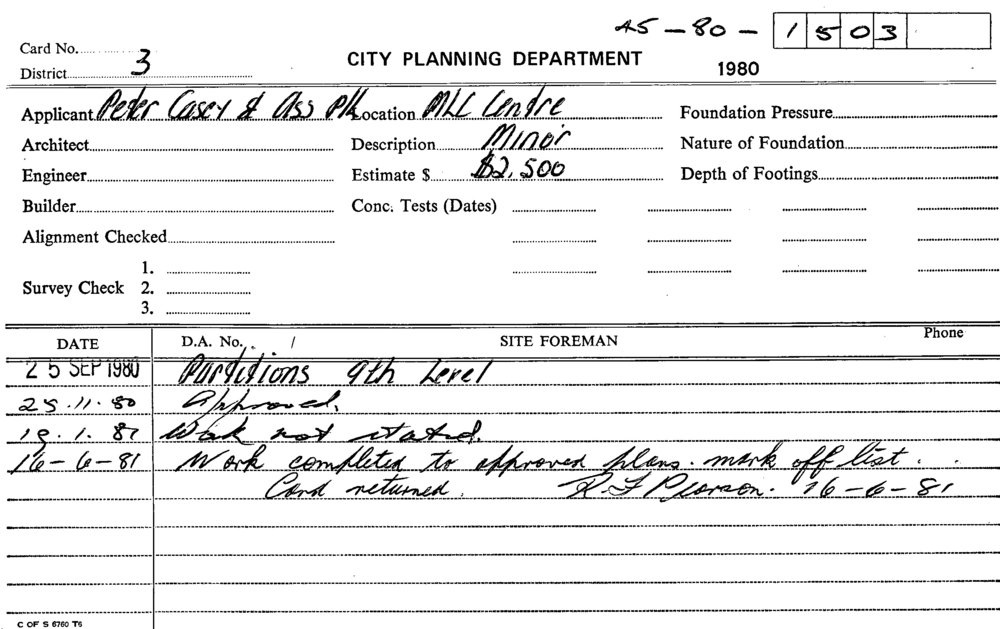 45-80-1503
Card No.
District 3
CITY PLANNING DEPARTMENT
1980
Applicant Peter Casey & Ass P/L Location MLC Centre Foundation Pressure
Architect Description Minor Nature of Foundation
Engineer Estimate $ $2,500 Depth of Footings
Builder Conc. Tests (Dates)
Alignment Checked
1.
Survey Check 2.
3.
DATE D.A. No. / SITE FOREMAN Phone
25 SEP 1980 Partitions 9th Level
25.11.80 Approved.
19.1.81 Work not stated.
16-6-81 Work completed to approved plans. mark off list.
Card returned. R. F Pearson. 16-6-81
C OF S 6760 T6